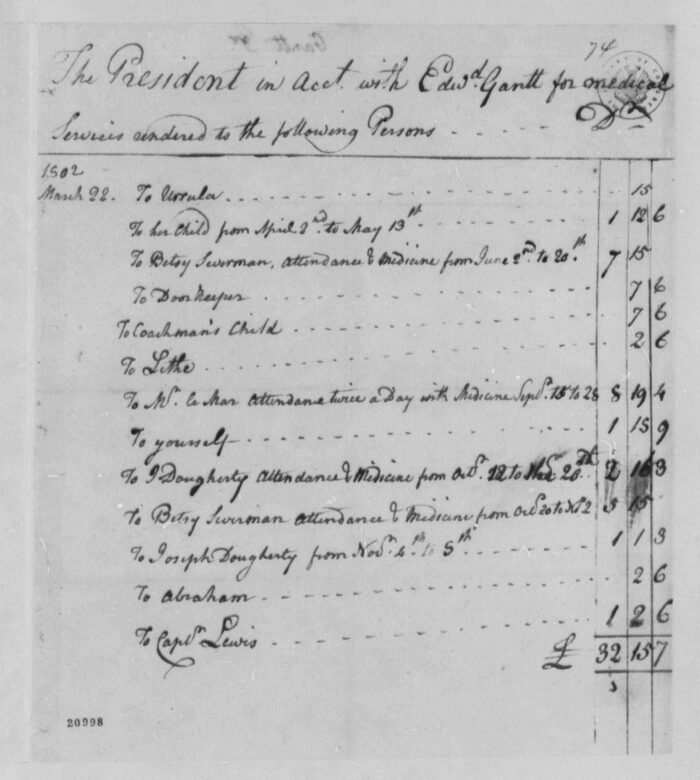 74
The President in Acct. with Edwd. Gantt for medical
Services rendered to the following Persons - - - - Dr
1802
March 22. To Ursula - - - 15
To her Child from April 2nd to May 13th - - - 1 12 6
To Betsy Swerman, Attendance & Medicine from June 2nd to 20th 7 15
To Doorkeeper - - - 7 6
To Coachman's Child - - - 7 6
To Lethe - - - 2 6
To Mr. Le Mar Attendance twice a Day with Medicine Sepr. 15 to 28 8 19 4
To yourself - - - 1 15 9
To J Dougherty Attendance & Medicine from Octr. 12 to 20th 2 16 3
To Betsy Swerman Attendance & Medicine from Octr 20 to 2 5 15
To Joseph Dougherty from Novr. 4th to 5th - - - 1 1 3
To Abraham - - - 2 6
To Captn Lewis - - - 1 2 6
£ 32 15 7
20998